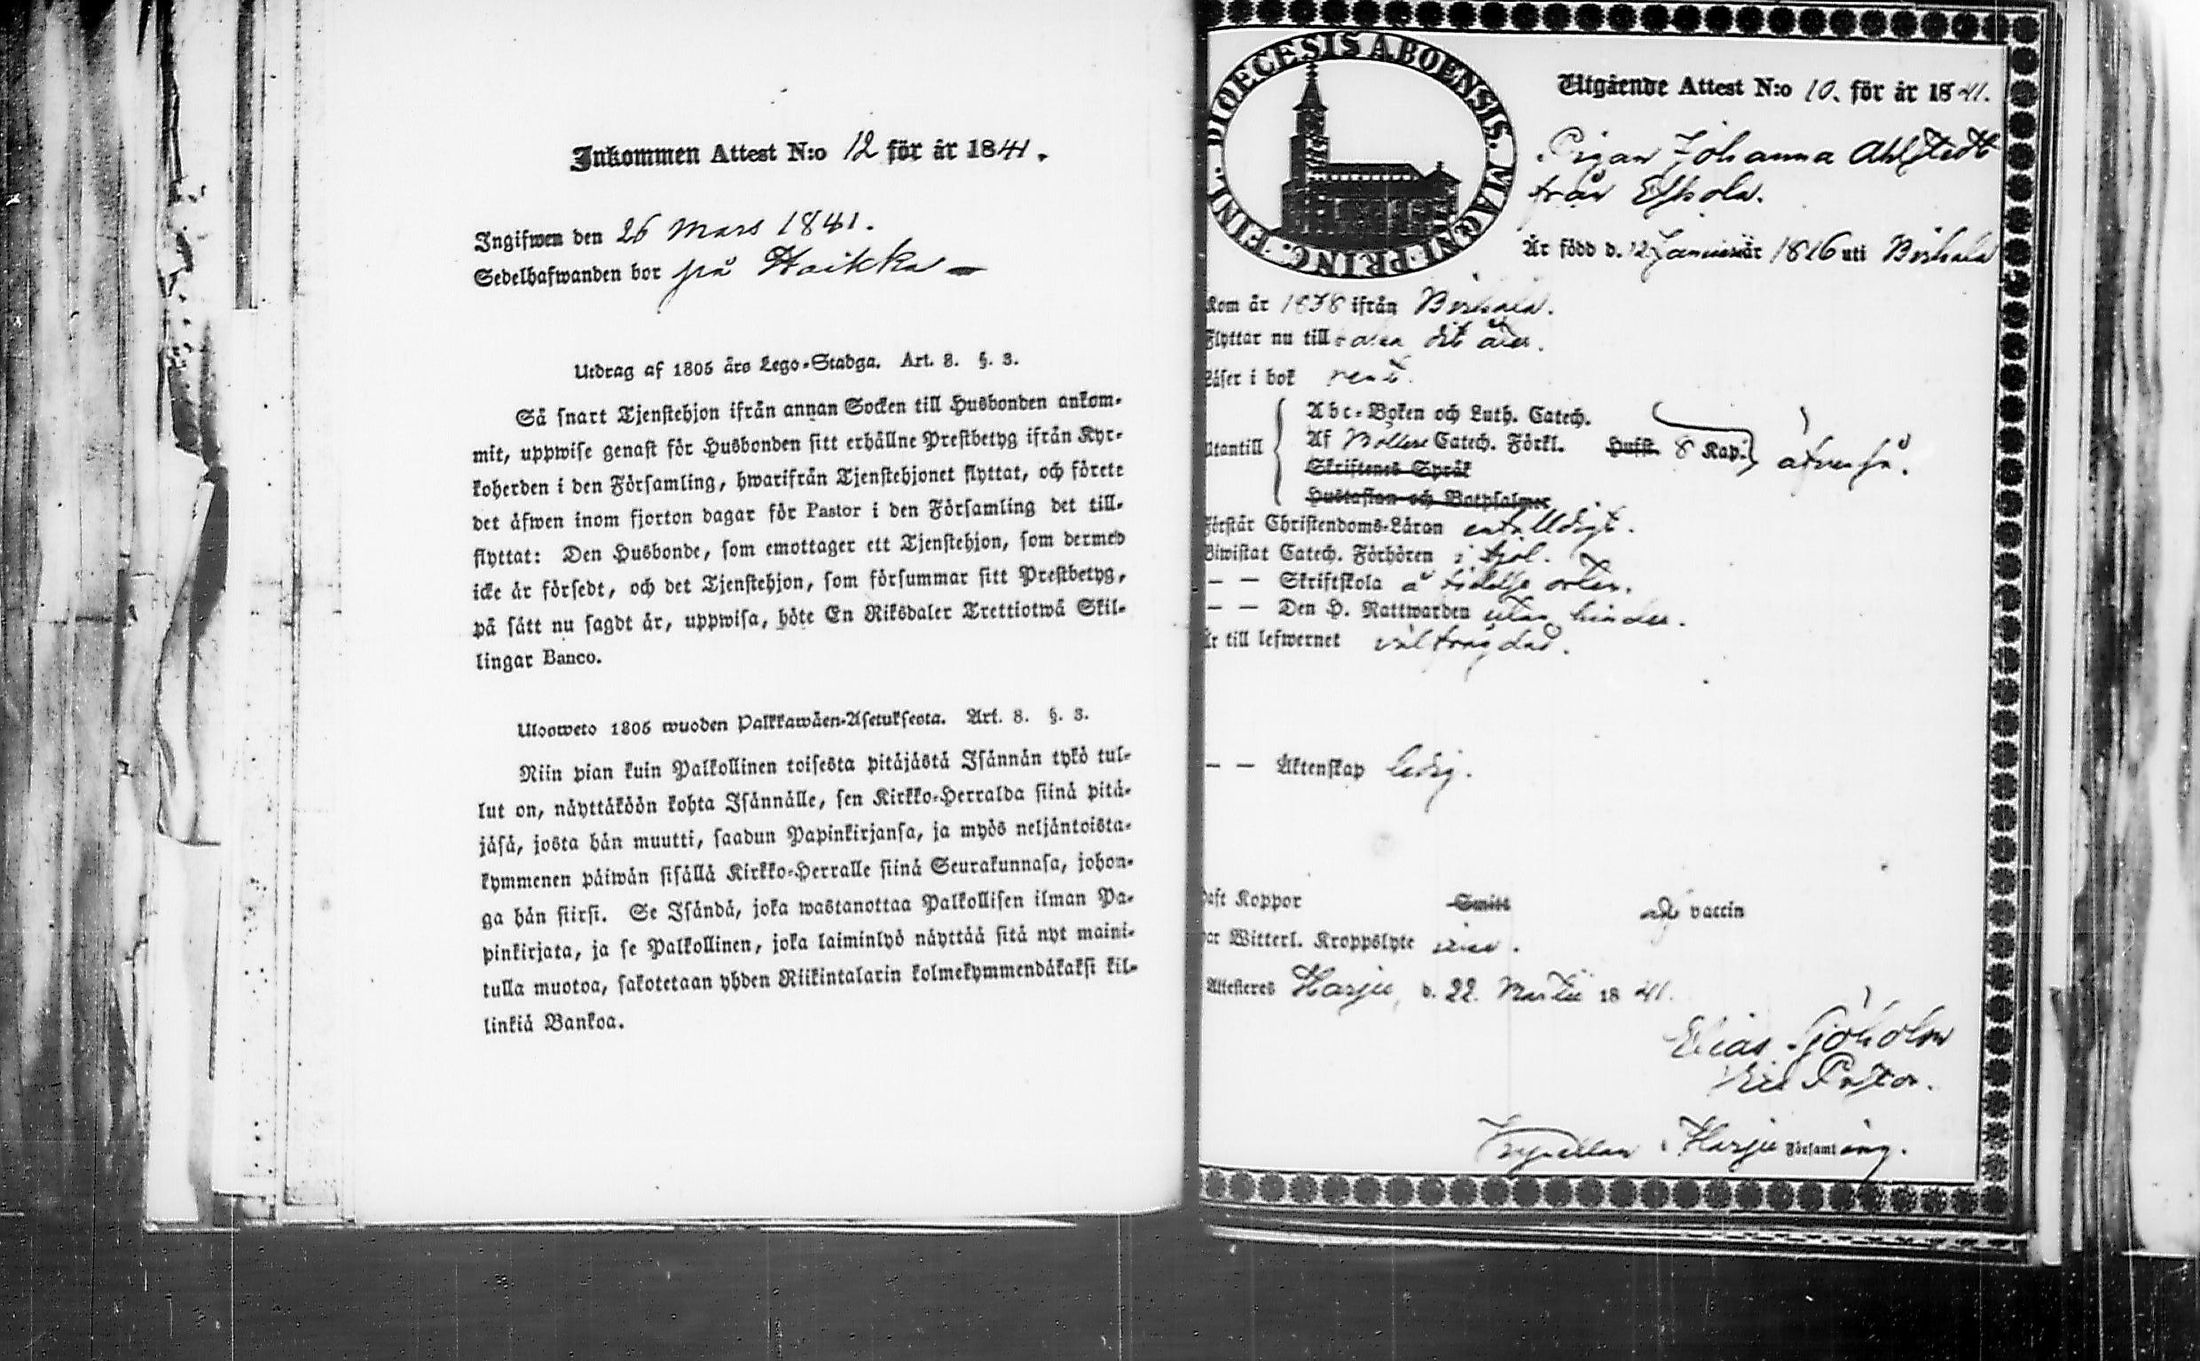 Inkommen Attest N:o 12 för år 1841.
Ingifwen den 26 Mars 1841.
Sedelhafwanden bor på Haikka
Utdrag af 1805 års Lego-Stadga. Art. 8. §. 3.
Så snart Tjenstehjon ifrån annan Socken till Husbonden ankom-
mit, uppwise genast för Husbonden sitt erhållne Prestbetyg ifrån Kyr-
koherden i den Församling, hwarifrån Tjenstehjonet flyttat, och förete
det äfwen inom fjorton dagar för Pastor i den Församling det till-
flyttat: Den Husbonde, som emottager ett Tjenstehjon, som dermed
icke är försedt, och det Tjenstehjon, som försummar sitt Prestbetyg,
på sätt nu sagdt är, uppwisa, böte En Riksdaler Trettiotwå Skil-
lingar Banco.
Ulosweto 1805 wuoden Palkkawäen-Asetuksesta. Art. 8. §. 3.
Niin pian kuin Palkollinen toisesta pitäjästä Isännän tykö tul-
lut on, näyttäköön kohta Isännälle, sen Kirkko-Herralda siinä pitä-
jäsä, josta hän muutti, saadun Papinkirjansa, ja myös neljäntoista-
kymmenen päiwän sisällä Kirkko-Herralle siinä Seurakunnasa, johon-
ga hän siirsi. Se Isändä, joka wastanottaa Palkollisen ilman Pa-
pinkirjata, ja se Palkollinen, joka laiminlyö näyttää sitä nyt maini-
tulla muotoa, sakotetaan yhden Riikintalarin kolmekymmendäkaksi kil-
linkiä Bankoa.
DIOECESIS ABOENSIS. MAGNI PRINC. FINL.
Utgående Attest N:o 10. för år 1841.
Pigan Johanna Ahlstedt
från
Är född d. 12 Januari år 1816 uti Birkala
Kom år 1838 ifrån Birkala.
Flyttar nu till dit åter.
Läser i bok rent.
Utantill
Abc-Boken och Luth. Catech.
Af Catech. Förkl. Husst. 8 Kap. äfwenså.
Skriftenes Språk
Hustaflan och Botpsalmer
Förstår Christendoms-Läran enfalldigt.
Biwistat Catech. Förhören i fjol.
— — Skriftskola å orten.
— — Den H. Nattwarden utan hinder.
Är till lefwernet välfrägdad.
— — Äktenskap ledig.
Haft Koppor Smitt vaccin
Har Witterl. Kroppslyte
Attesteres Harju, d. 22 Martii 1841.
Elias Sjöholm
Vice Pastor.
i Harju Församling.